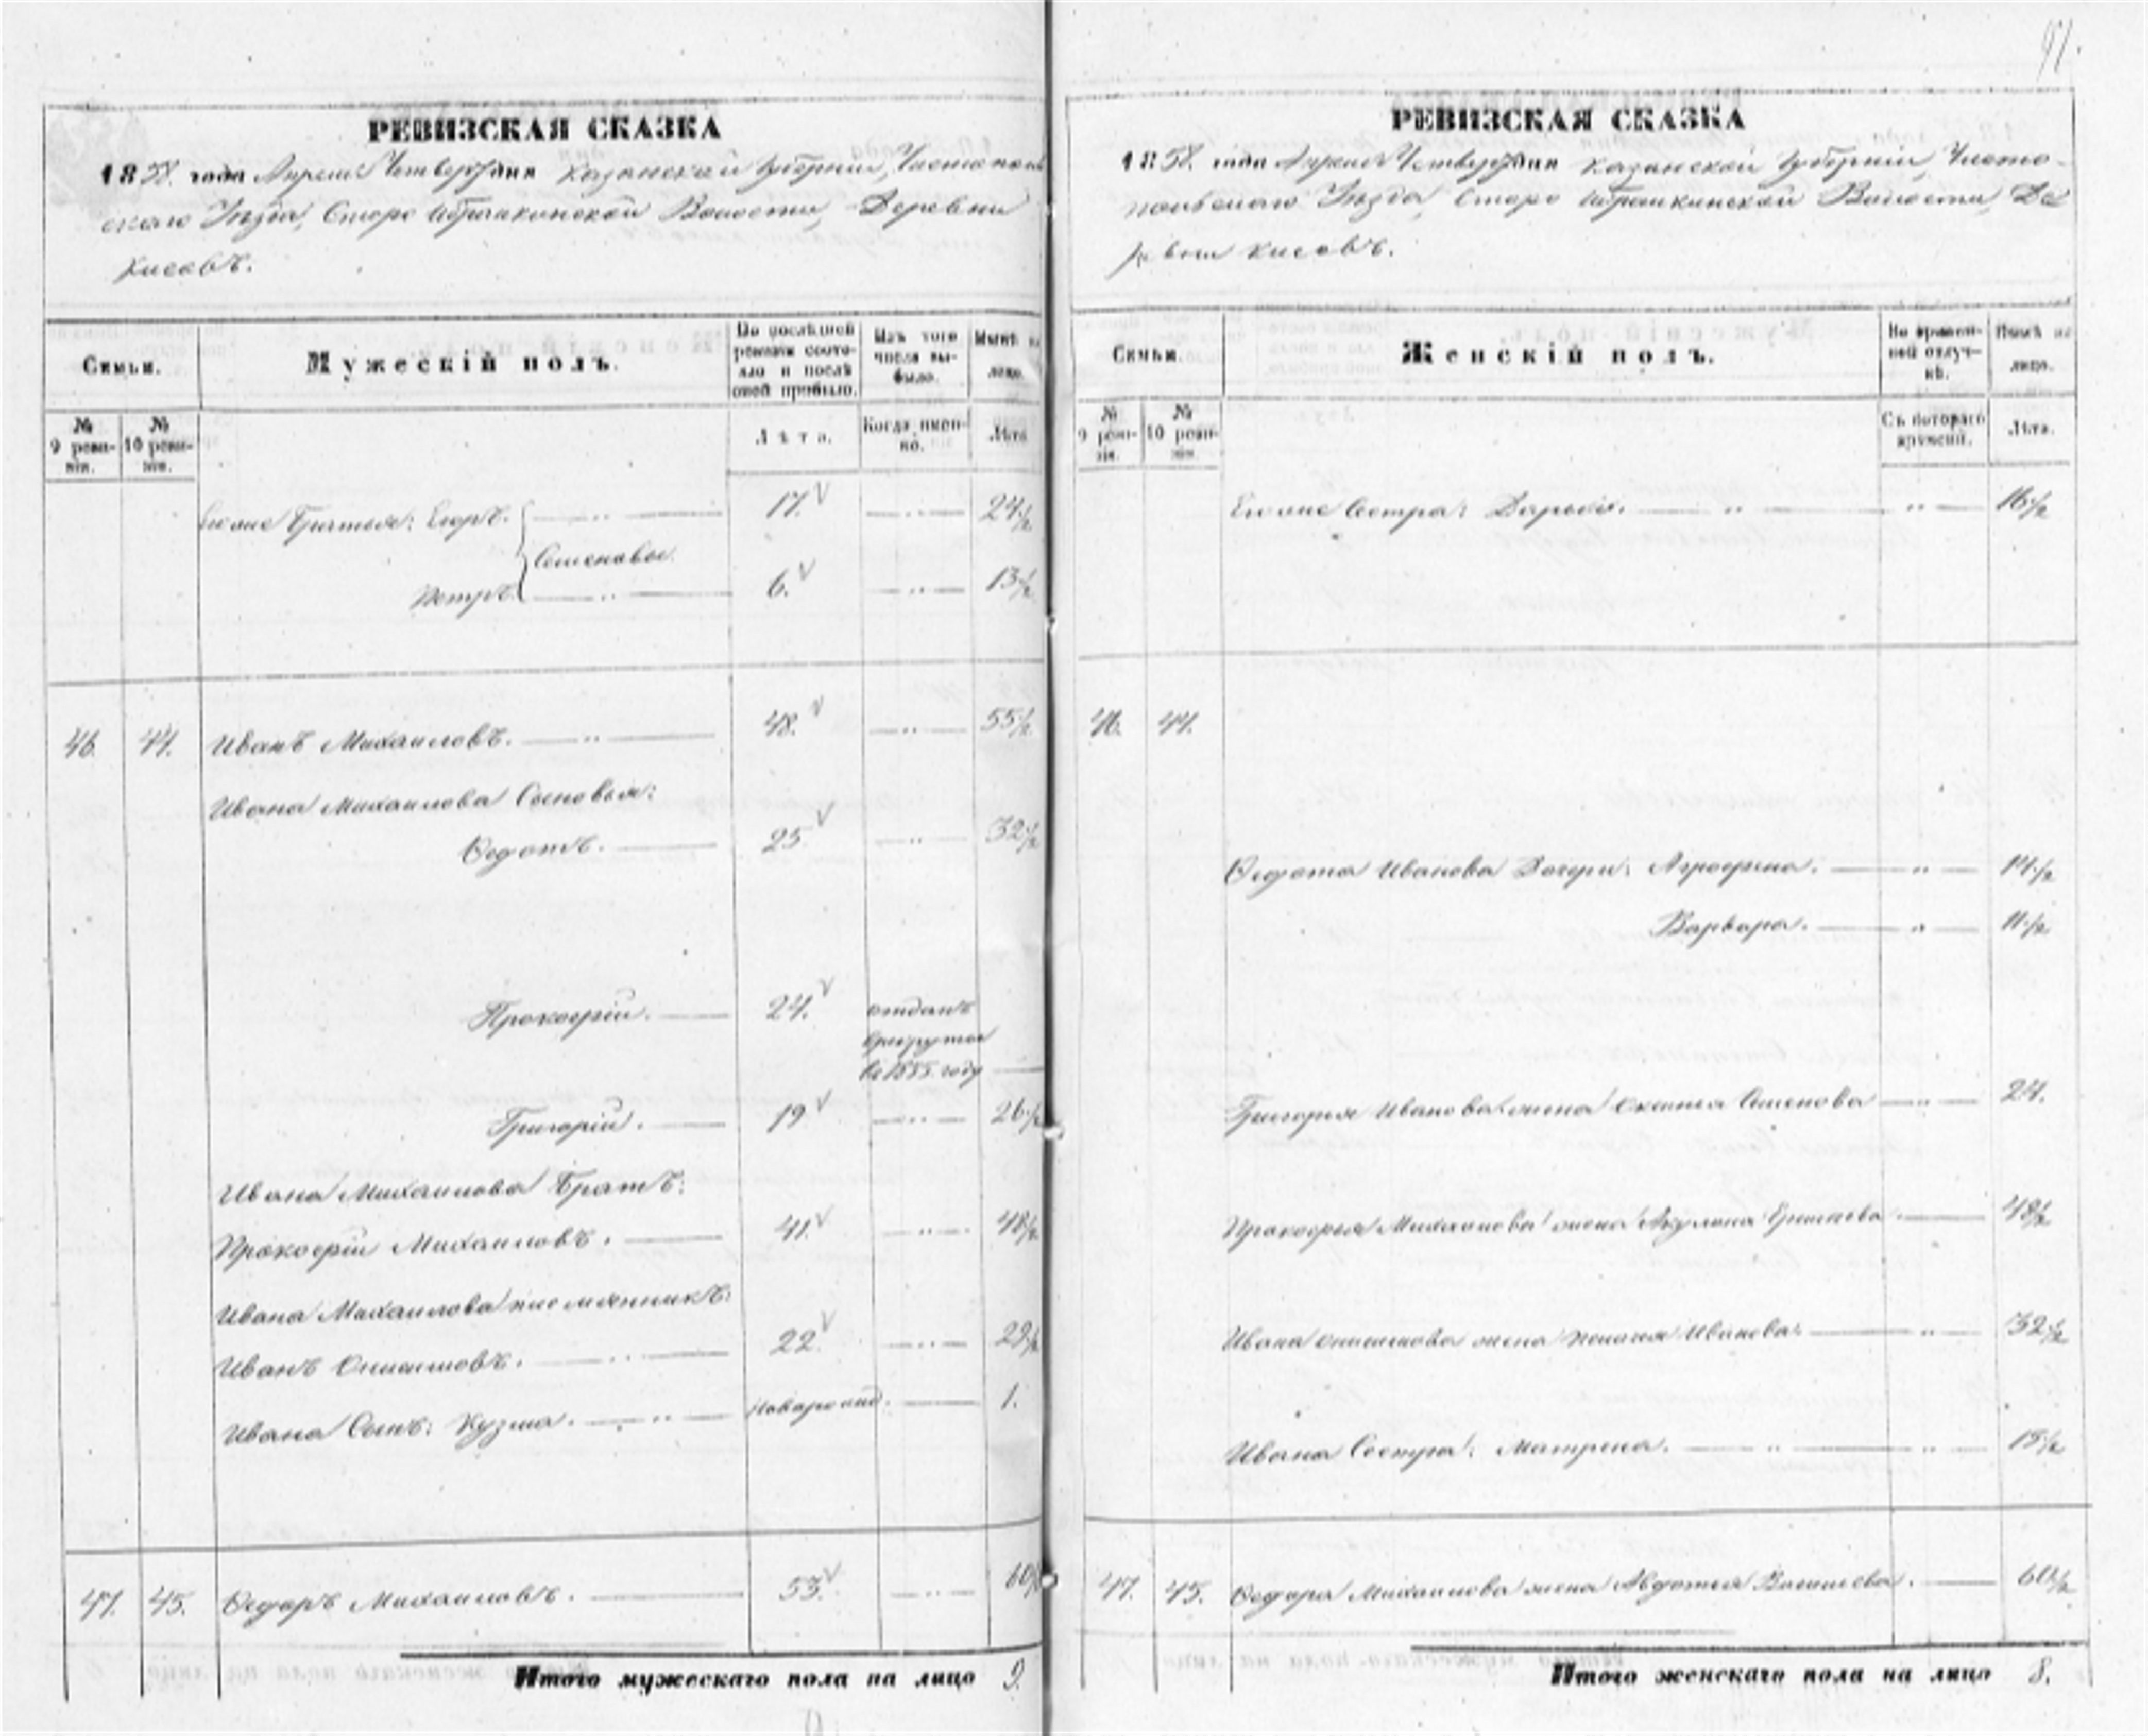 91.
РЕВИЗСКАЯ СКАЗКА
1858. года Апреля Четвертаго дня Казанской Губерніи, Чистополь
скаго Уезда, Старо Ибрайкинской Волости, Деревни
Кисовъ.
Семьи.
Мужескій полъ.
По послѣдней ревизіи состояло и послѣ оной прибыло.
Изъ того числа выбыло.
Нынѣ на лицо.
№ 9 ревизіи.
№ 10 ревизіи.
Лѣта.
Когда именно.
Лѣта
Егоже Братья: Егоръ. 17. 24½
Семеновы.
Петръ. 6. 13½
46. 44. Иванъ Михаиловъ. 48. 55½
Ивана Михаилова Сыновья:
Федотъ. 25 32½
Прокофій. 24. отданъ
в рекруты
въ 1855. году
Григорій. 19 26½
Ивана Михаилова Братъ:
Прокофій Михаиловъ. 41. 48½
Ивана Михаилова племянникъ:
Иванъ 22. 29½
Ивана Сынъ: Кузма. новорожд. 1.
47. 45. Федоръ Михаиловъ. 53. 60½
Итого мужескаго пола на лицо 9.
РЕВИЗСКАЯ СКАЗКА
1858. года Апреля Четвертаго дня Казанской Губерніи, Чисто-
польскаго Уезда, Старо Ибрайкинской Волости, Де
ревни Кисовъ.
Семьи.
Женскій полъ.
Во временной отлучкѣ.
Нынѣ на лицо.
№ 9 ревизіи.
№ 10 ревизіи
Съ котораго времени.
Лѣта.
Егоже Сестра: Дарья. 16½
46. 44.
Федота Иванова Дочери: Аграфена. 14½
Варвара. 11½
Григорья Иванова жена Семенова 24.
Прокофья Михаилова жена Акулина 48½
Ивана жена Иванова. 32½
Ивана Сестра: Матрена. 18½
47. 45. Федора Михаилова жена Авдотья Васильева. 60½
Итого женскаго пола на лицо 8.